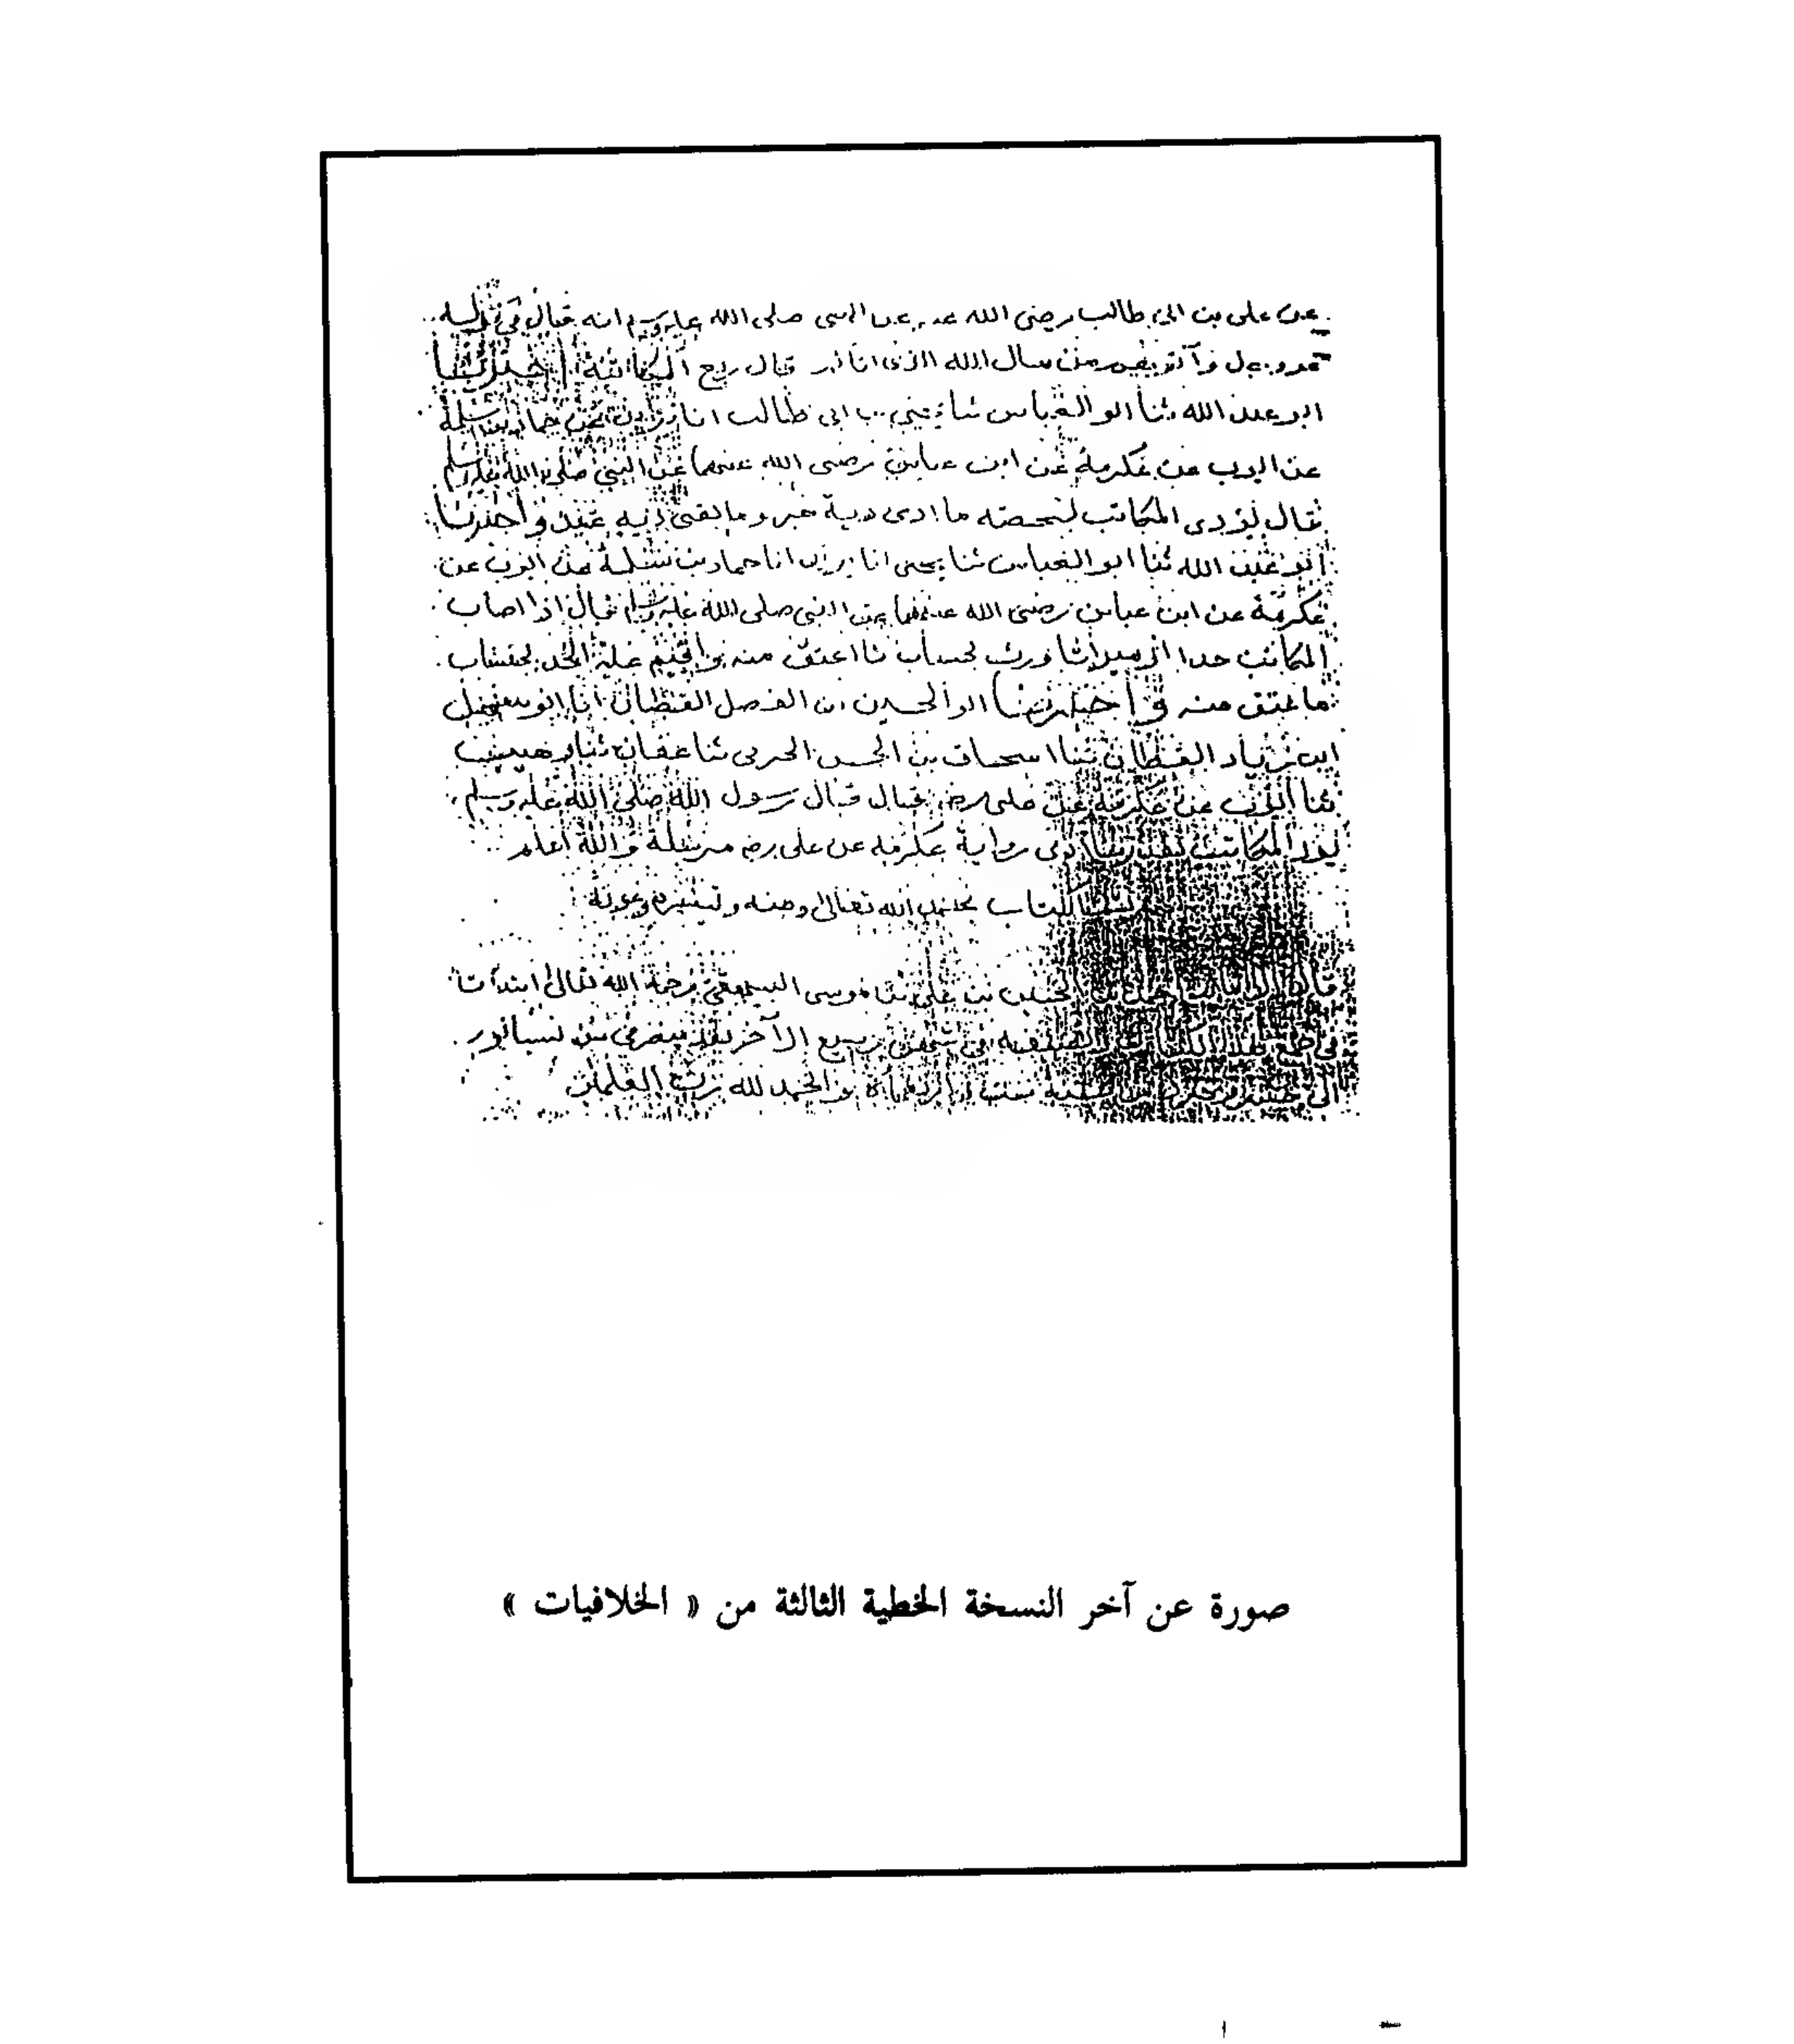 عن على بن ابي طالب رضى الله عنه عن النبى صلى الله عليه وسلم انه قال في قوله
عز وجل وآتوهم من مال الله الذى اتاكم قال ربع الكتابة أخبرنا
ابو عبد الله ثنا ابو العباس ثنا يحيى بن ابى طالب انا يزيد عن حماد بن سلمة
عن ايوب عن عكرمة عن ابن عباس رضى الله عنهما عن النبي صلى الله عليه وسلم
قال يؤدى المكاتب بحصته ما ادى دية حر وما بقى دية عبد وأخبرنا
ابو عبد الله ثنا ابو العباس ثنا يحيى انا يزيد انا حماد بن سلمة عن ايوب عن
عكرمة عن ابن عباس رضى الله عنهما عن النبى صلى الله عليه وسلم قال اذا اصاب
المكاتب حدا او ميراثا ورث بحساب ما اعتق منه واقيم عليه الحد بحساب
ما عتق منه وأخبرنا ابو الحسين بن الفضل القطان انا ابو سهل
ابن زياد القطان ثنا اسحاق بن الحسن الحربى ثنا عفان ثنا وهيب
ثنا ايوب عن عكرمة عن على رضه قال قال رسول الله صلى الله عليه وسلم
المكاتب رواية عكرمة عن على رضه مرسلة والله اعلم
الكتاب بحمد الله تعالى ومنه وتيسيره وعونه
الحسين بن على بن موسى البيهقى رحمه الله تعالى ابتدأت
في ربيع الآخر من نيسابور
الى والحمد لله رب العلمين
صورة عن آخر النسخة الخطية الثالثة من « الخلافيات »